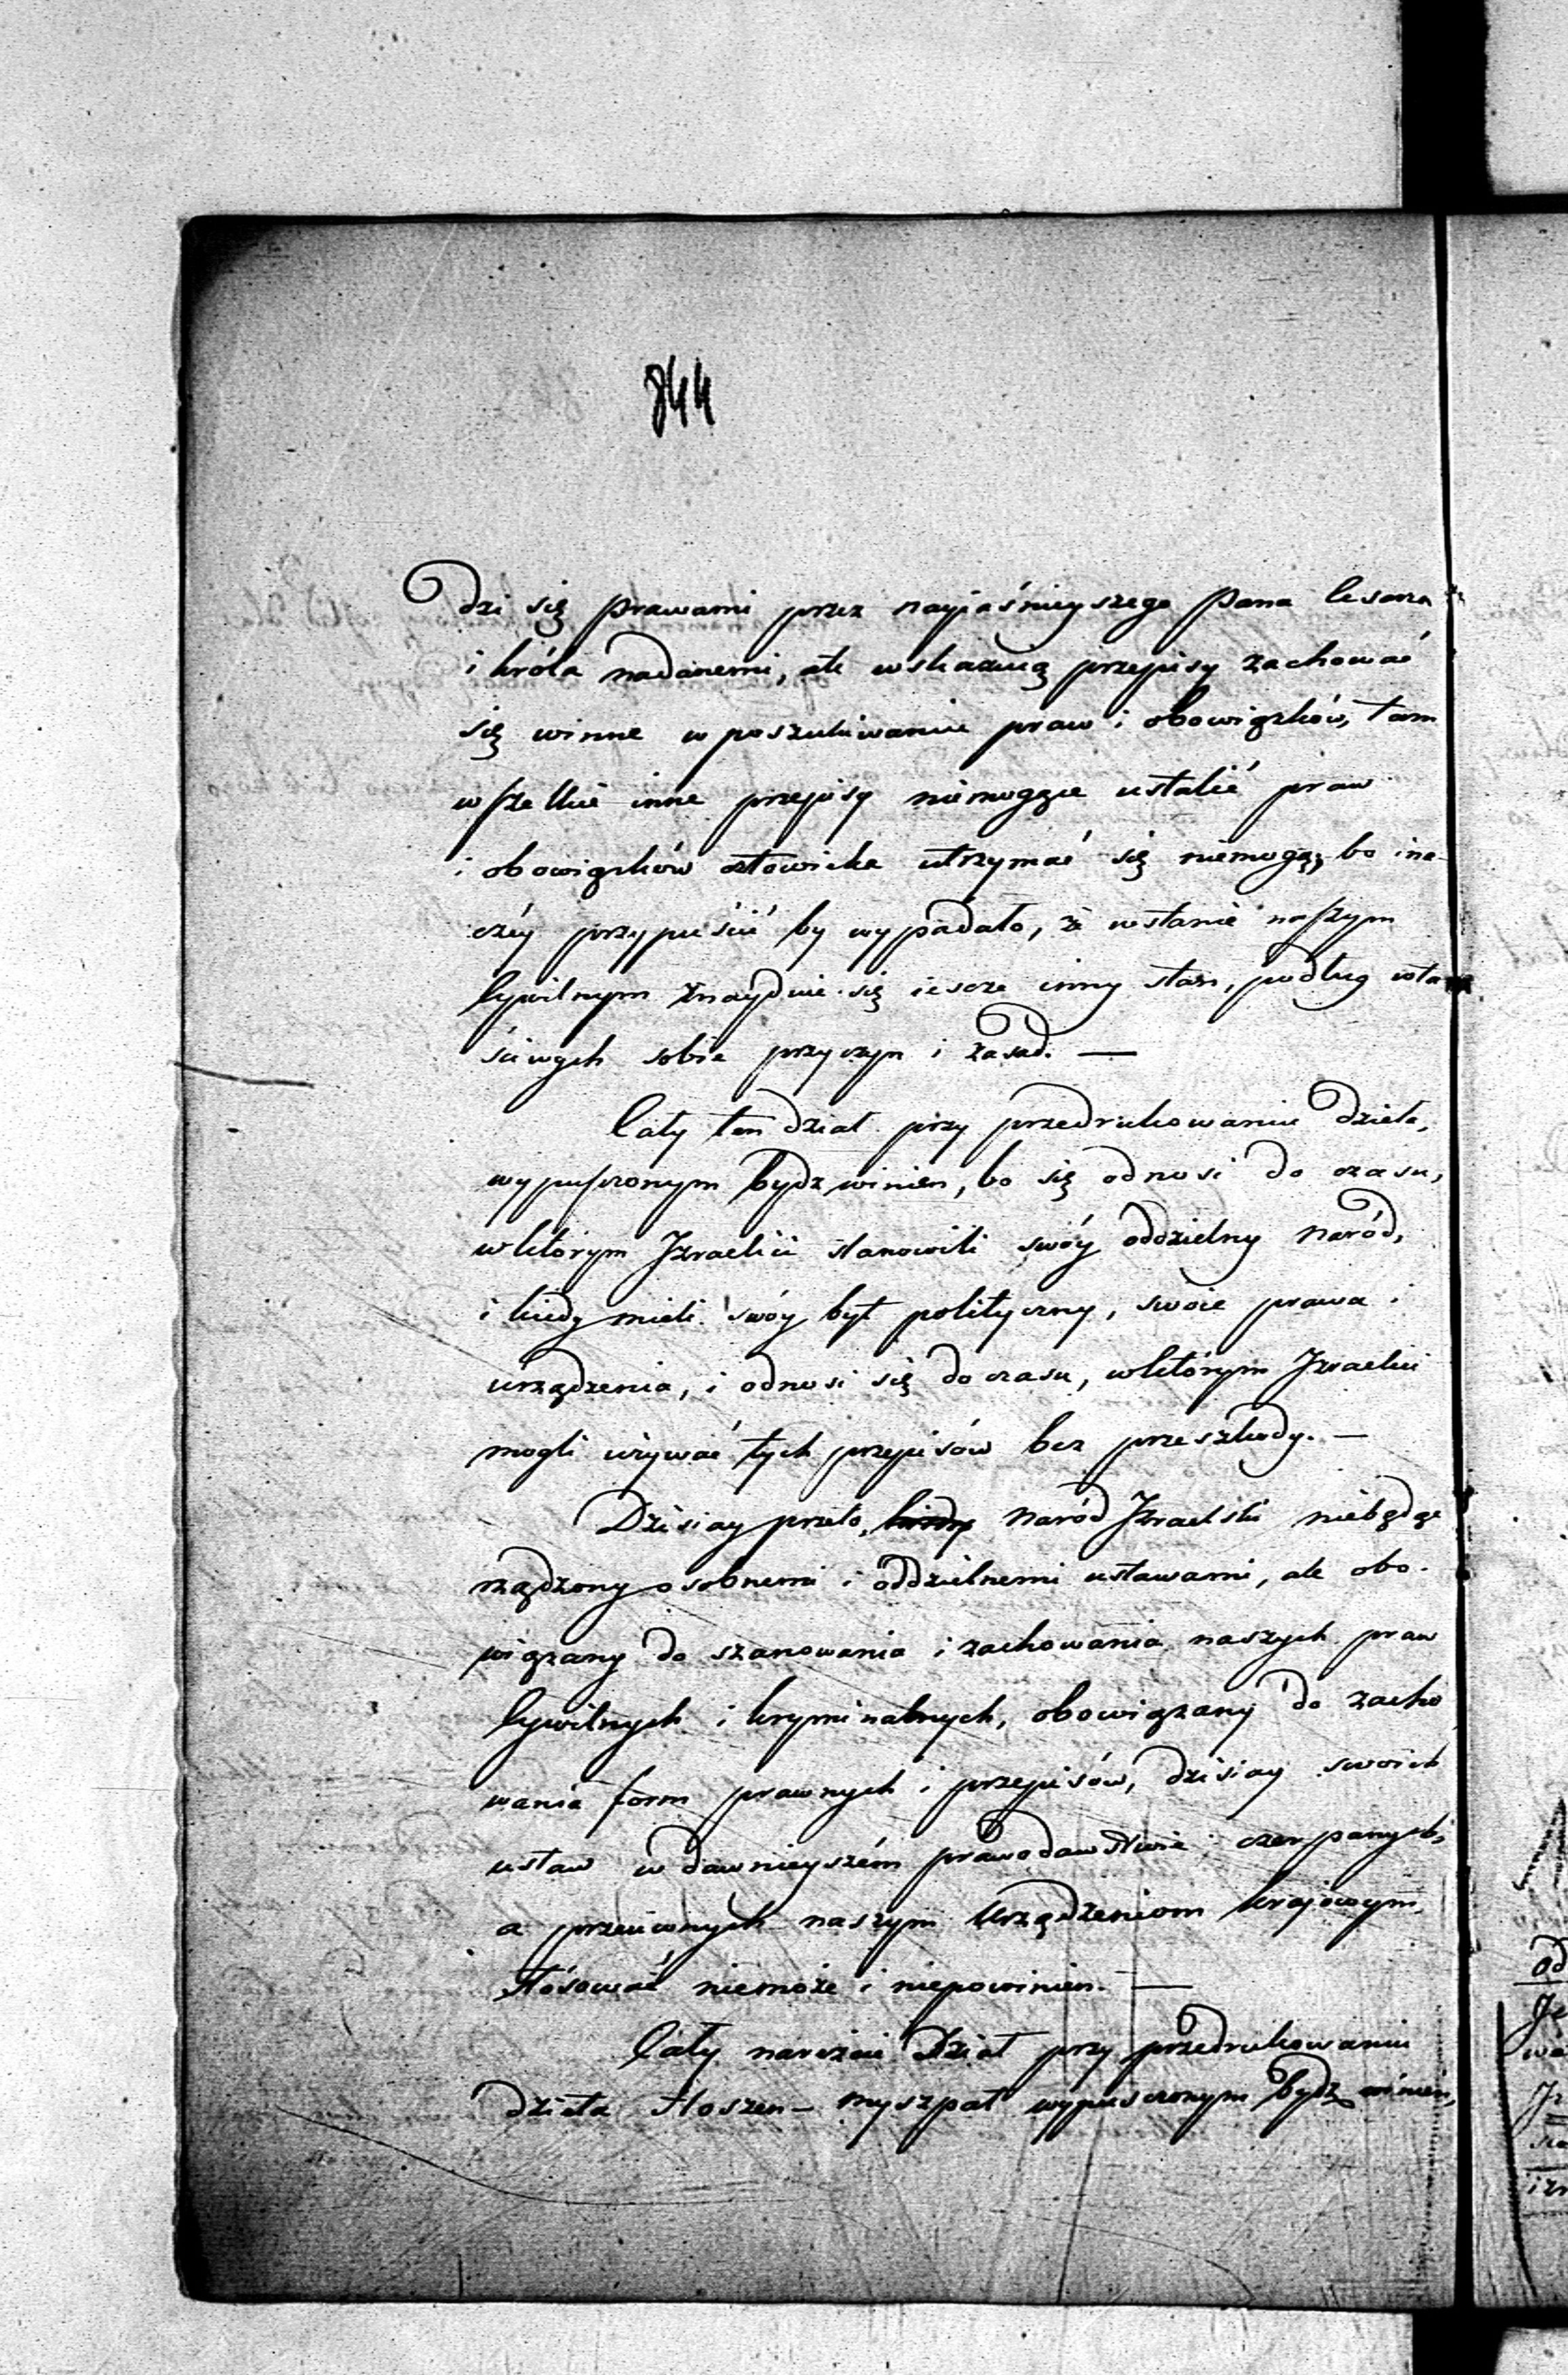 844
dzi się prawami przez nayiaśnieyszego Pana Cesarza
i króla nadanemi, ale wskazuią przepisy zachować
się winne w poszukiwaniu praw i obowiązków, tam
wszelkie inne przepisy niemogące ustalić praw
i obowiązków człowieka utrzymać się niemogą, bo ina-
czéy przypuścić by wypadało, że w stanie naszym
Cywilnym znayduie się ieszcze inny stan, podług wła
ściwych sobie przyczyn i zasad. —
Cały ten dział przy przedrukowaniu dzieła,
wypuszczonym bydz winien, bo się odnosi do czasu,
w którym Izraelici stanowili swóy oddzielny naród,
i kiedy mieli swóy byt polityczny, swoie prawa i
urządzenia, i odnosi się do czasu, w którym Izraelici
mogli używać tych przepisów bez przeszkody. —
Dzisiay przeto, kiedy naród Izraelski niebędąc
rządzony osobnemi i oddzielnemi ustawami, ale obo-
wiązany do szanowania i zachowania naszych praw
Cywilnych i kryminalnych, obowiązany do zacho
wania form prawnych i przepisów, dzisiay swoich
ustaw w dawnieyszém prawodawstwie czerpanych,
a przeciwnych naszym urządzeniom krajowym,
stósować niemoże i niepowinien. —
Cały nareszcie Dział przy przedrukowaniu
dzieła Hoszen-myszpat wypuszczonym bydz winien,